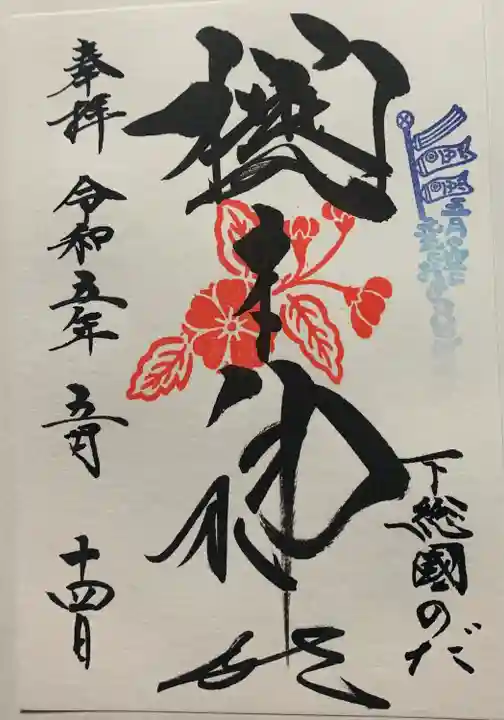 下総國のだ
櫻木神社
奉拝 令和五年 五月 十四日